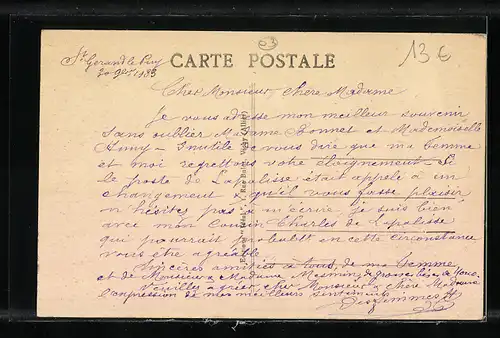 St Gerand le Puy
CARTE POSTALE
03
13 €
Cher Monsieur, chère Madame
Je vous adresse mon meilleur souvenir
sans oublier Madame Bonnet et Mademoiselle
Inutile de vous dire que ma femme
et moi regrettons votre éloignement - Si
le poste de Lapalisse était appelé à un
changement & qu'il vous fasse plaisir
n'hésitez pas à m'écrire je suis bien
avec mon cousin Charles de Lapalisse
qui pourrait probablt en cette circonstance
vous être agréable
Sincères amitiés à tous, de ma femme
et de Monsieur & Madame
Veuillez agréer, cher Monsieur & chère Madame
l'expression de mes meilleurs sentiments